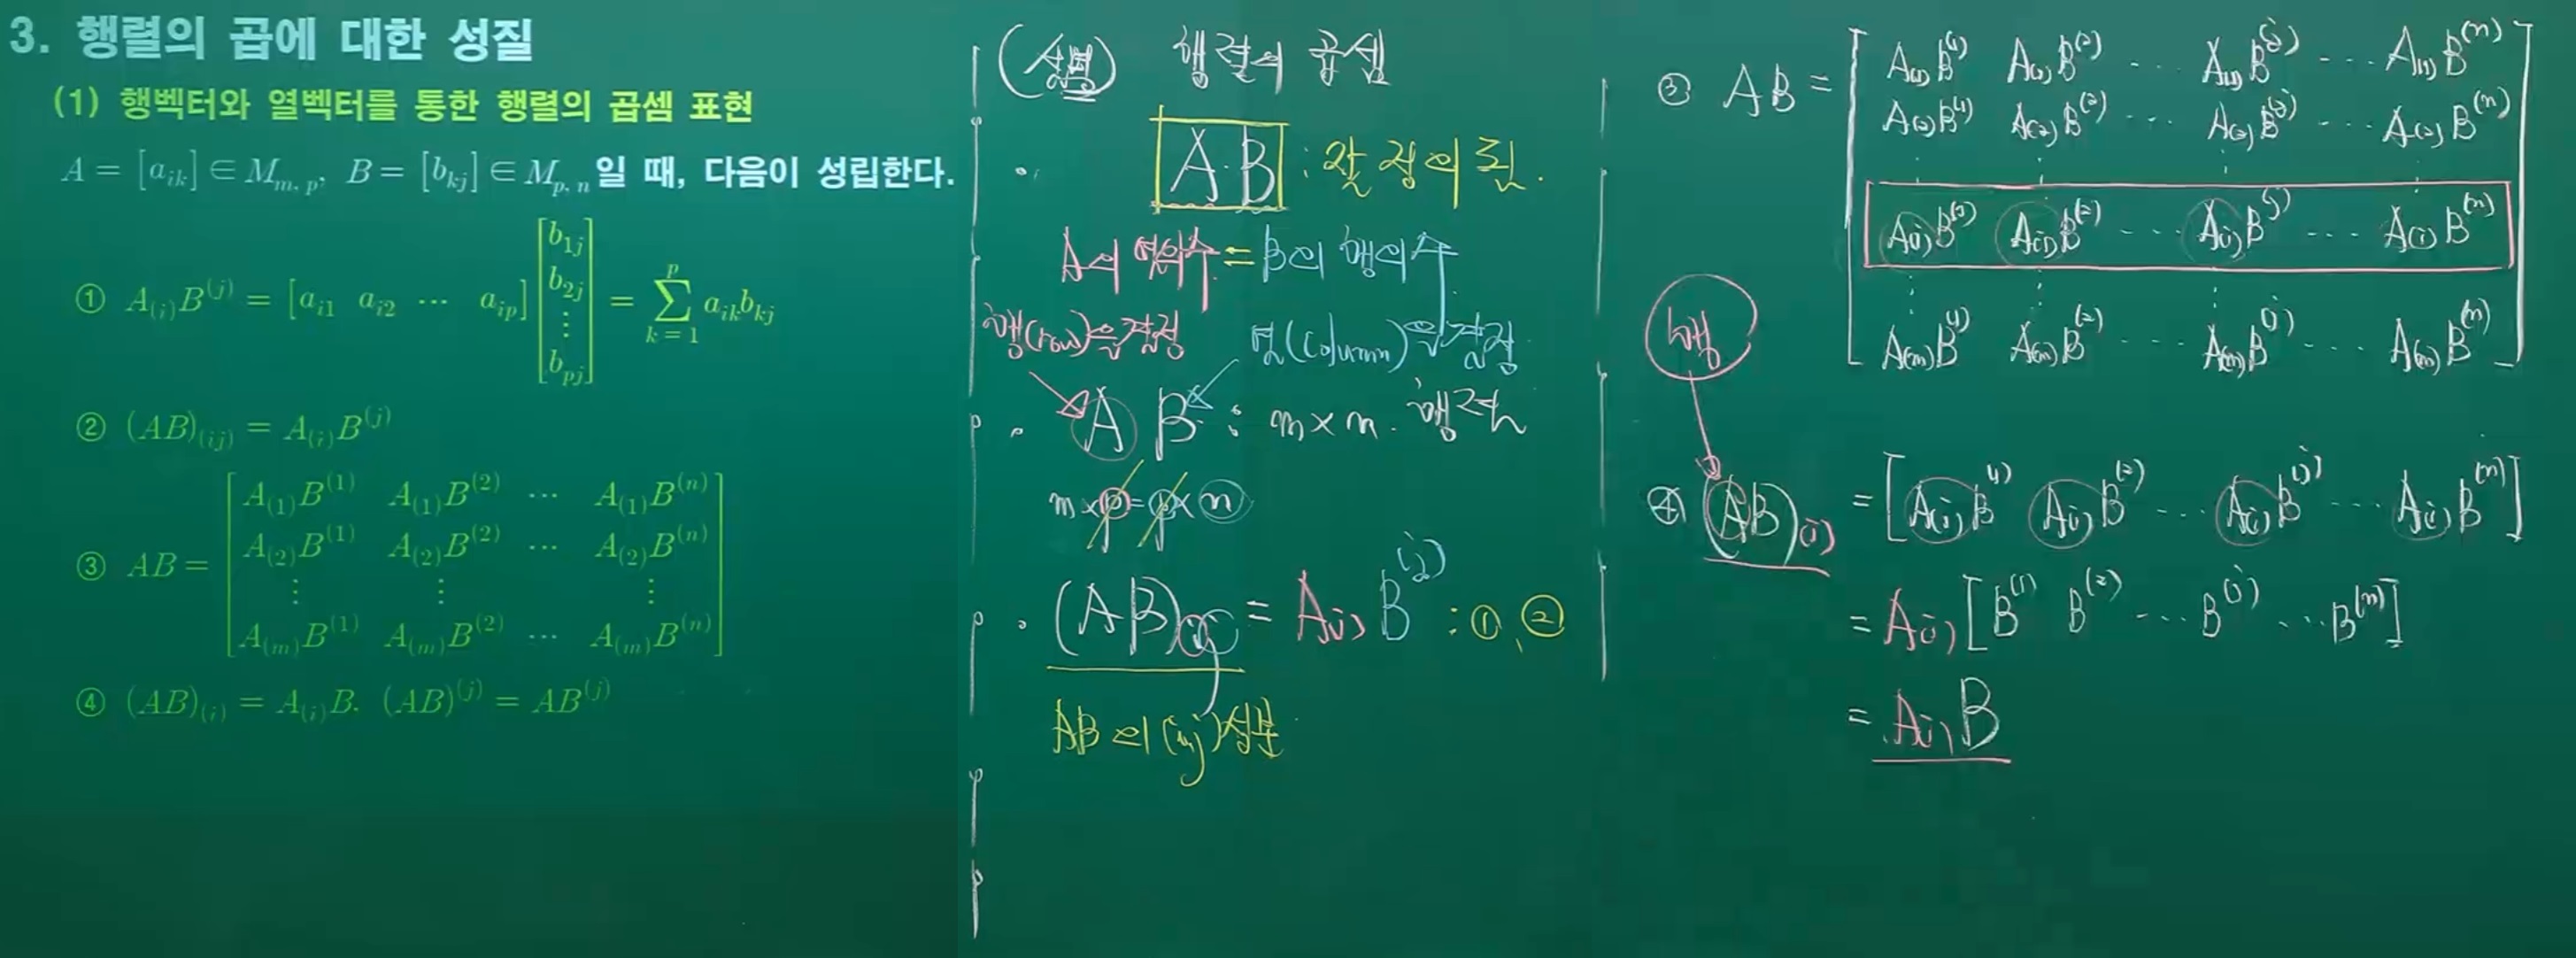 3. 행렬의 곱에 대한 성질
(1) 행벡터와 열벡터를 통한 행렬의 곱셈 표현
A = [a_{ik}] ∈ M_{m, p}, B = [b_{kj}] ∈ M_{p, n} 일 때, 다음이 성립한다.
① A_{(i)}B^{(j)} = [a_{i1} a_{i2} ⋯ a_{ip}] [b_{1j} b_{2j} ⋮ b_{pj}] = ∑_{k=1}^{p} a_{ik}b_{kj}
② (AB)_{(ij)} = A_{(i)}B^{(j)}
③ AB = [
A_{(1)}B^{(1)} A_{(1)}B^{(2)} ⋯ A_{(1)}B^{(n)}
A_{(2)}B^{(1)} A_{(2)}B^{(2)} ⋯ A_{(2)}B^{(n)}
⋮ ⋮ ⋮
A_{(m)}B^{(1)} A_{(m)}B^{(2)} ⋯ A_{(m)}B^{(n)}
]
④ (AB)_{(i)} = A_{(i)}B, (AB)^{(j)} = AB^{(j)}
(설명) 행렬의 곱셈
· A·B : 잘 정의됨.
A의 열의 수 = B의 행의 수
행(row)을 결정 열(column)을 결정
· A B : m×n 행렬
m×p = p×n
· (AB)_{(ij)} = A_{(i)}B^{(j)} : ①, ②
AB의 (i,j) 성분
③ AB = [
A_{(1)}B^{(1)} A_{(1)}B^{(2)} ⋯ A_{(1)}B^{(j)} ⋯ A_{(1)}B^{(n)}
A_{(2)}B^{(1)} A_{(2)}B^{(2)} ⋯ A_{(2)}B^{(j)} ⋯ A_{(2)}B^{(n)}
⋮ ⋮ ⋮ ⋮
A_{(i)}B^{(1)} A_{(i)}B^{(2)} ⋯ A_{(i)}B^{(j)} ⋯ A_{(i)}B^{(n)}
⋮ ⋮ ⋮ ⋮
A_{(m)}B^{(1)} A_{(m)}B^{(2)} ⋯ A_{(m)}B^{(j)} ⋯ A_{(m)}B^{(n)}
]
행
④ (AB)_{(i)} = [A_{(i)}B^{(1)} A_{(i)}B^{(2)} ⋯ A_{(i)}B^{(j)} ⋯ A_{(i)}B^{(n)}]
= A_{(i)} [B^{(1)} B^{(2)} ⋯ B^{(j)} ⋯ B^{(n)}]
= A_{(i)}B